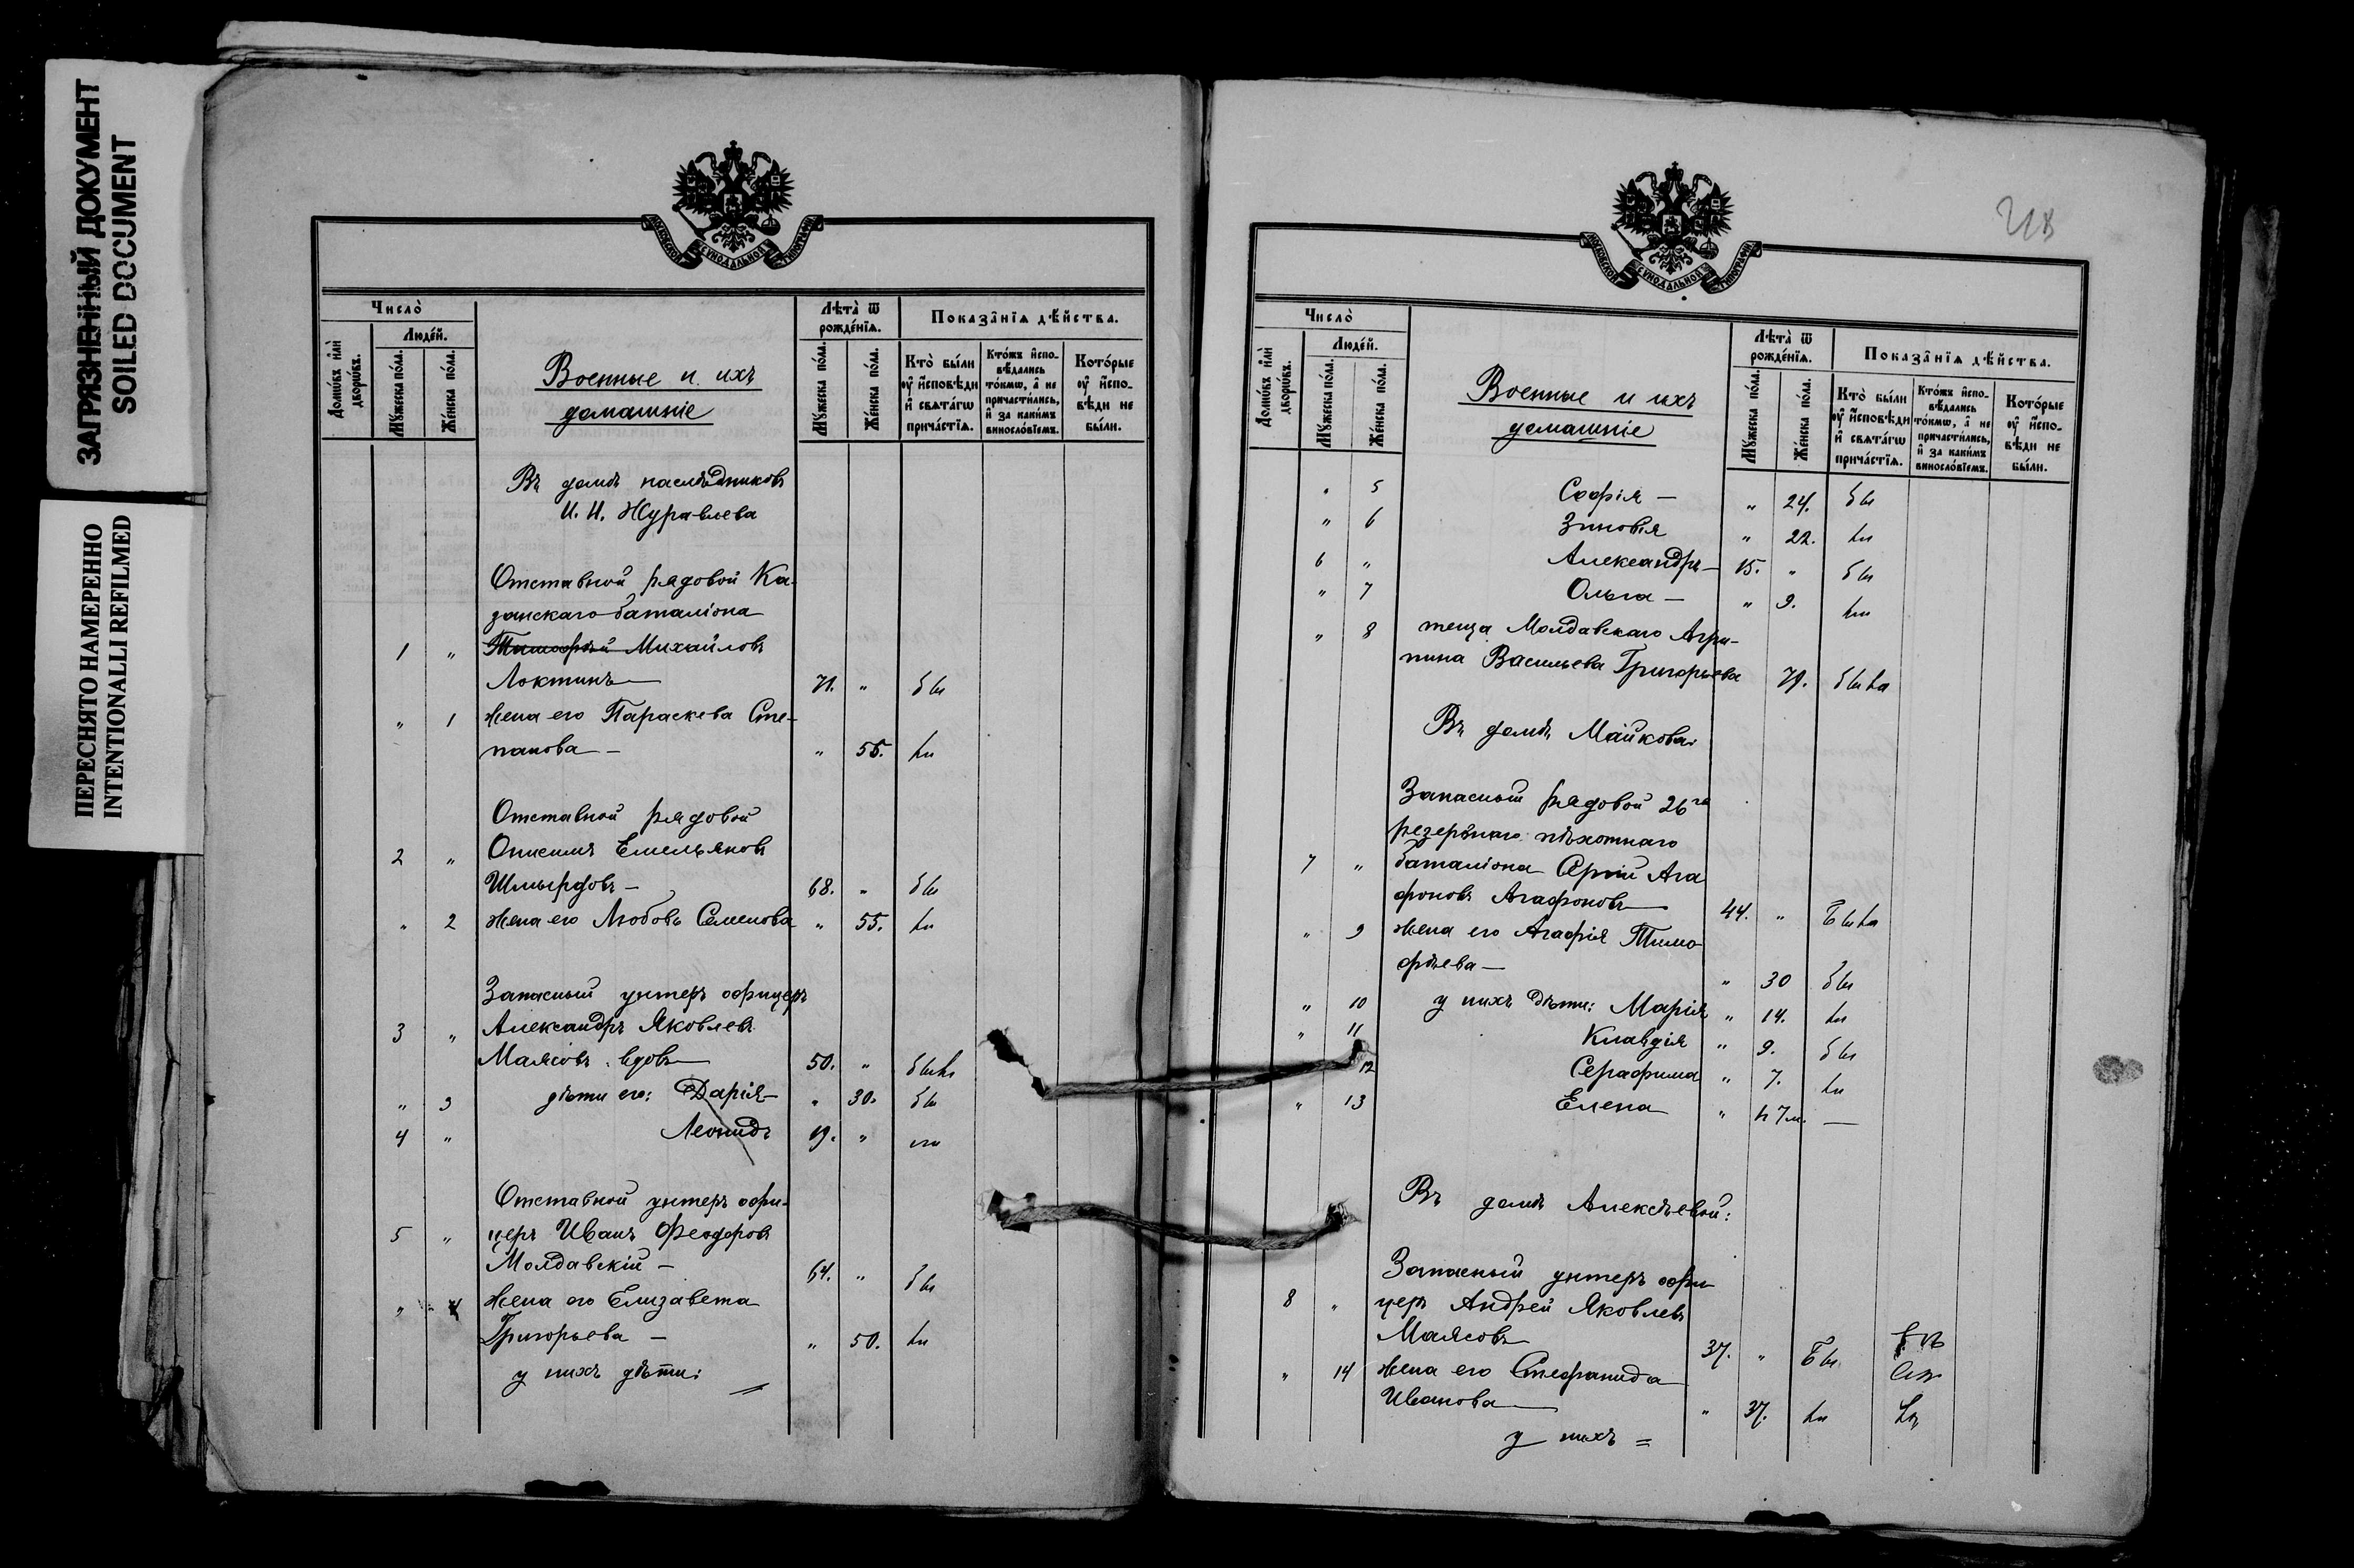 ЗАГРЯЗНЕННЫЙ ДОКУМЕНТ
SOILED DOCUMENT
ПЕРЕСНЯТО НАМЕРЕННО
INTENTIONALLI REFILMED
МОСКОВСКОЙ СѴНОДАЛЬНОЙ ТИПОГРАФІИ
Число̀
Людéй.
Домѡ́въ и҆лѝ дворѡ́въ.
Мꙋ́жеска по́ла.
Же́нска по́ла.
Военные и ихъ
домашніе
Лѣ́та ѿ рожде́нїѧ.
Мꙋ́жеска по́ла.
Же́нска по́ла.
Показа̑нїѧ дѣ́йства.
Кто̀ бы́ли оу҆ и҆сповѣ́ди и҆ свѧта́гѡ прича́стїѧ.
Кто́жъ и҆спо-вѣ́дались то́кмѡ, а҆ не причасти́лись, и҆ за каки́мъ виносло́вїемъ.
Кото́рые оу҆ и҆спо-вѣ́ди не бы́ли.
Въ домѣ наслѣдниковъ
И. И. Журавлева
Отставной рядовой Ка-
занскаго баталіона
1 " Тимофѣй Михайловъ
Локтинъ — 71. " бы
" 1 жена его Параскева Сте-
панова — " 55. ли
Отставной рядовой
2 " Онисимъ Емельяновъ
Шмырдовъ — 68. " бы
" 2 жена его Любовь Семенова " 55. ли
Запасный унтеръ офицеръ
3 " Александръ Яковлевъ
Маясовъ, вдовъ 50. " были
" 3 дѣти его: Дарія — " 30. бы
4 " Леонидъ 19. " ли
Отставной унтеръ офи-
5 " церъ Иванъ Феодоровъ
Молдавскій — 64. " бы
" 4 жена его Елизавета
Григорьева — " 50. ли
у нихъ дѣти: =
МОСКОВСКОЙ СѴНОДАЛЬНОЙ ТИПОГРАФІИ
Число̀
Людéй.
Домѡ́въ и҆лѝ дворѡ́въ.
Мꙋ́жеска по́ла.
Же́нска по́ла.
Военные и ихъ
домашніе
Лѣ́та ѿ рожде́нїѧ.
Мꙋ́жеска по́ла.
Же́нска по́ла.
Показа̑нїѧ дѣ́йства.
Кто̀ бы́ли оу҆ и҆сповѣ́ди и҆ свѧта́гѡ прича́стїѧ.
Кто́жъ и҆спо-вѣ́дались то́кмѡ, а҆ не причасти́лись, и҆ за каки́мъ виносло́вїемъ.
Кото́рые оу҆ и҆спо-вѣ́ди не бы́ли.
" 5 Софія — " 24. бы
" 6 Зиновія " 22. ли
6 " Александръ — 15. " бы
" 7 Ольга — " 9. ли
" 8 теща Молдавскаго Агри-
пина Васильева Григорьева 79. была
Въ домѣ Майкова:
Запасный рядовой 26го
резервнаго пѣхотнаго
7 " баталіона Сергій Ага
фоновъ Агафоновъ 44. " Была
" 9 жена его Агафія Тимо
фѣева — " 30 бы
" 10 у нихъ дѣти: Марія " 14. ли
" 11 Клавдія " 9. бы
12 Серафима " 7. ли
" 13 Елена " 7 м. —
Въ домѣ Алексѣевой:
Запасный унтеръ офи-
8 " церъ Андрей Яковлевъ
Маясовъ 37. " Бы
" 14 жена его Стефанида
Иванова — " 37. ли
у нихъ =